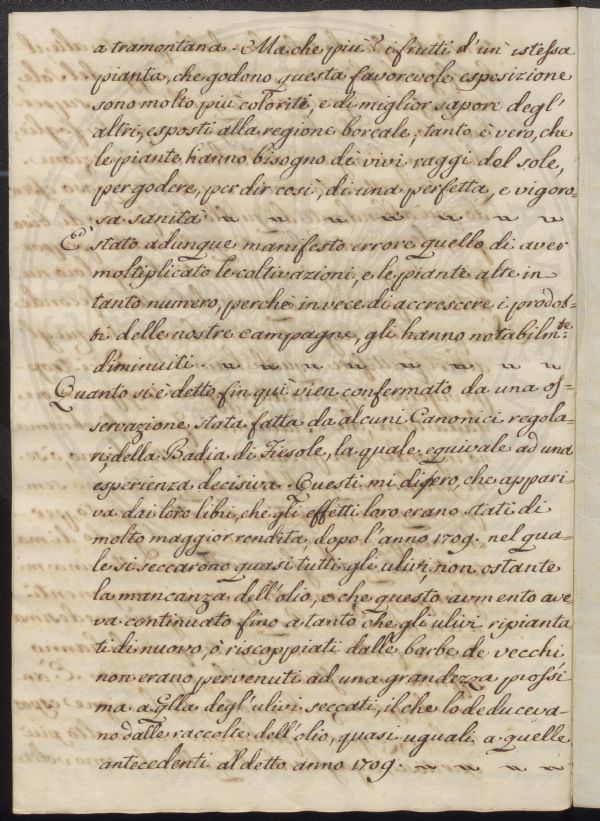 a tramontana. Ma che più? i frutti d'un' istessa
pianta, che godono questa favorevole esposizione
sono molto più coloriti, e di miglior sapore degl'
altri, esposti alla regione boreale; tanto è vero, che
le piante hanno bisogno de vivi raggi del sole,
per godere, per dir così, di una perfetta, e vigoro=
sa sanità
E' stato adunque manifesto errore quello di aver
moltiplicato le coltivazioni, e le piante alte in
tanto numero, perche in vece di accrescere i prodot=
ti delle nostre campagne, gli hanno notabilm.te
diminuiti.
Quanto si è detto fin quì vien confermato da una os=
servazione stata fatta da alcuni Canonici regola=
ri della Badia di Fiesole, la quale equivale ad una
esperienza decisiva. Questi mi disero, che appari=
va dai loro libri, che gli effetti loro erano stati di
molto maggior rendita, dopo l'anno 1709., nel qua=
le si seccarono quasi tutti gli ulivi, non ostante
la mancanza dell'olio, e che questo aumento ave=
va continuato fino a tanto che gli ulivi ripianta=
ti di nuovo, ò riscoppiati dalle barbe de vecchi,
non erano pervenuti ad una grandezza prossi=
ma a qlla degl'ulivi seccati, il che lo deduceva=
no dalle raccolte dell'olio, quasi uguali a quelle
antecedenti al detto anno 1709.